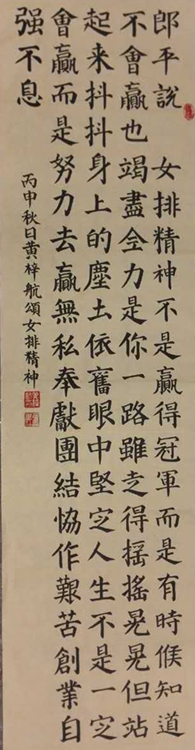 郎平說 女排精神不是贏得冠軍而是有時候知道
不會贏也竭盡全力是你一路雖走得摇搖晃晃但站
起来抖抖身上的塵土依舊眼中堅定人生不是一定
會贏而是努力去贏無私奉獻團結恊作艱苦創業自
强不息
丙申秋日黄梓航頌女排精神